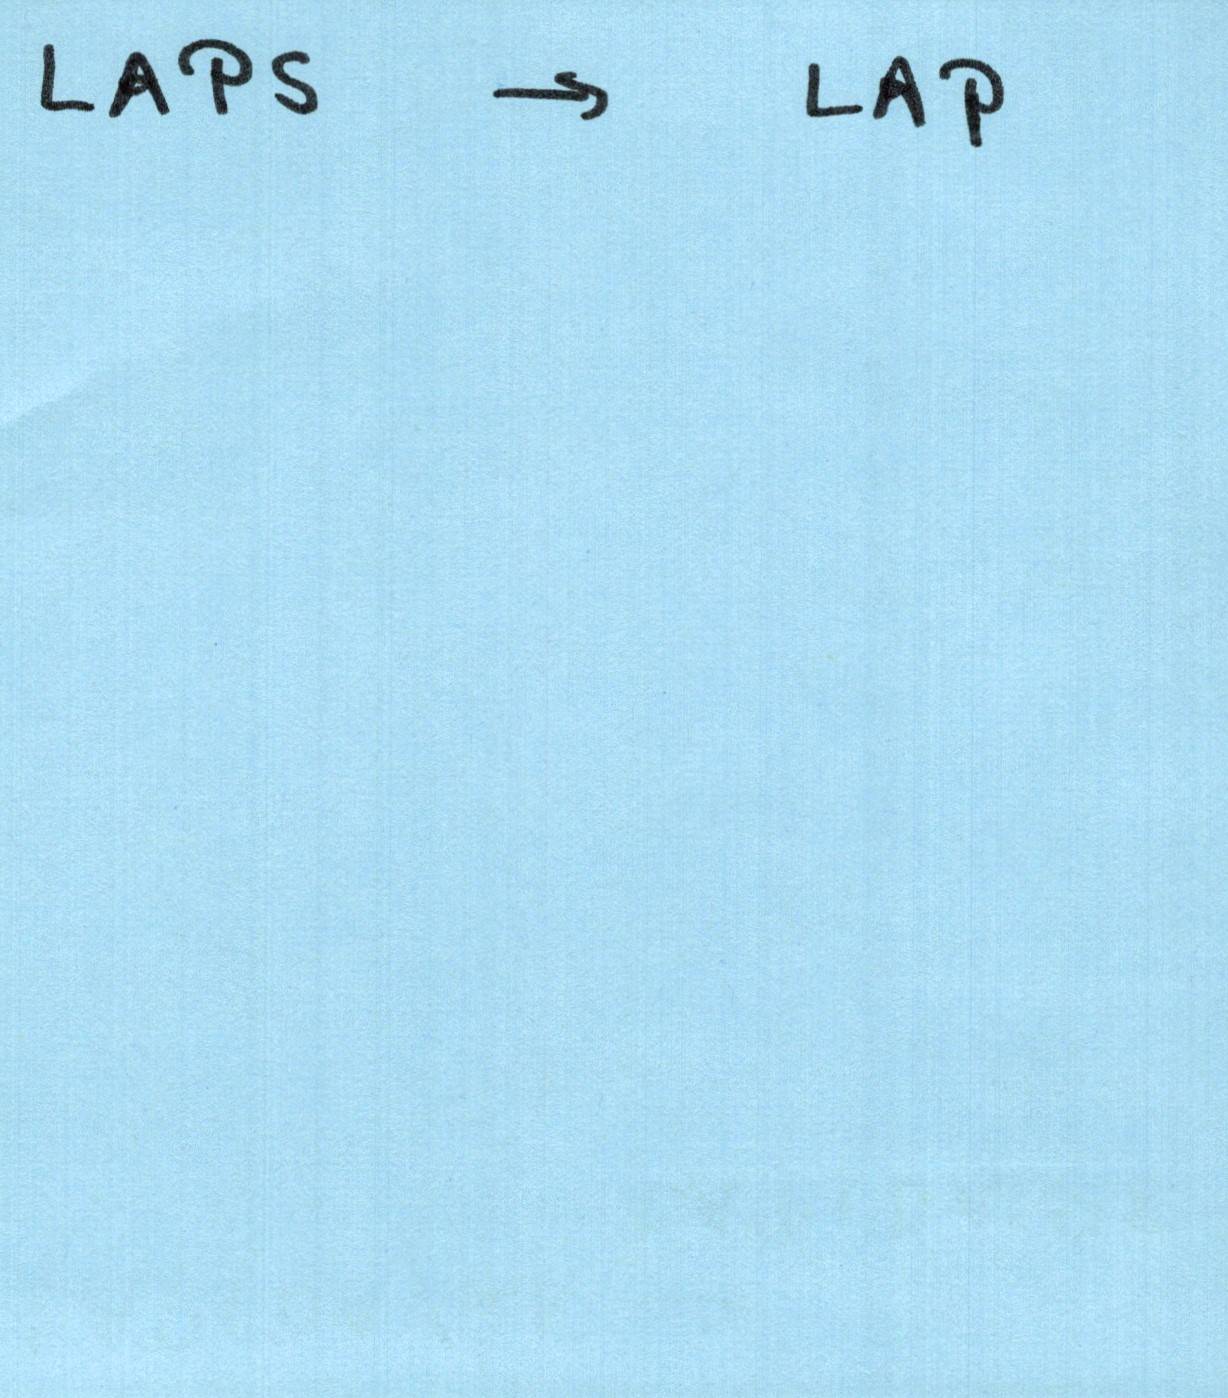 LAPS → LAP